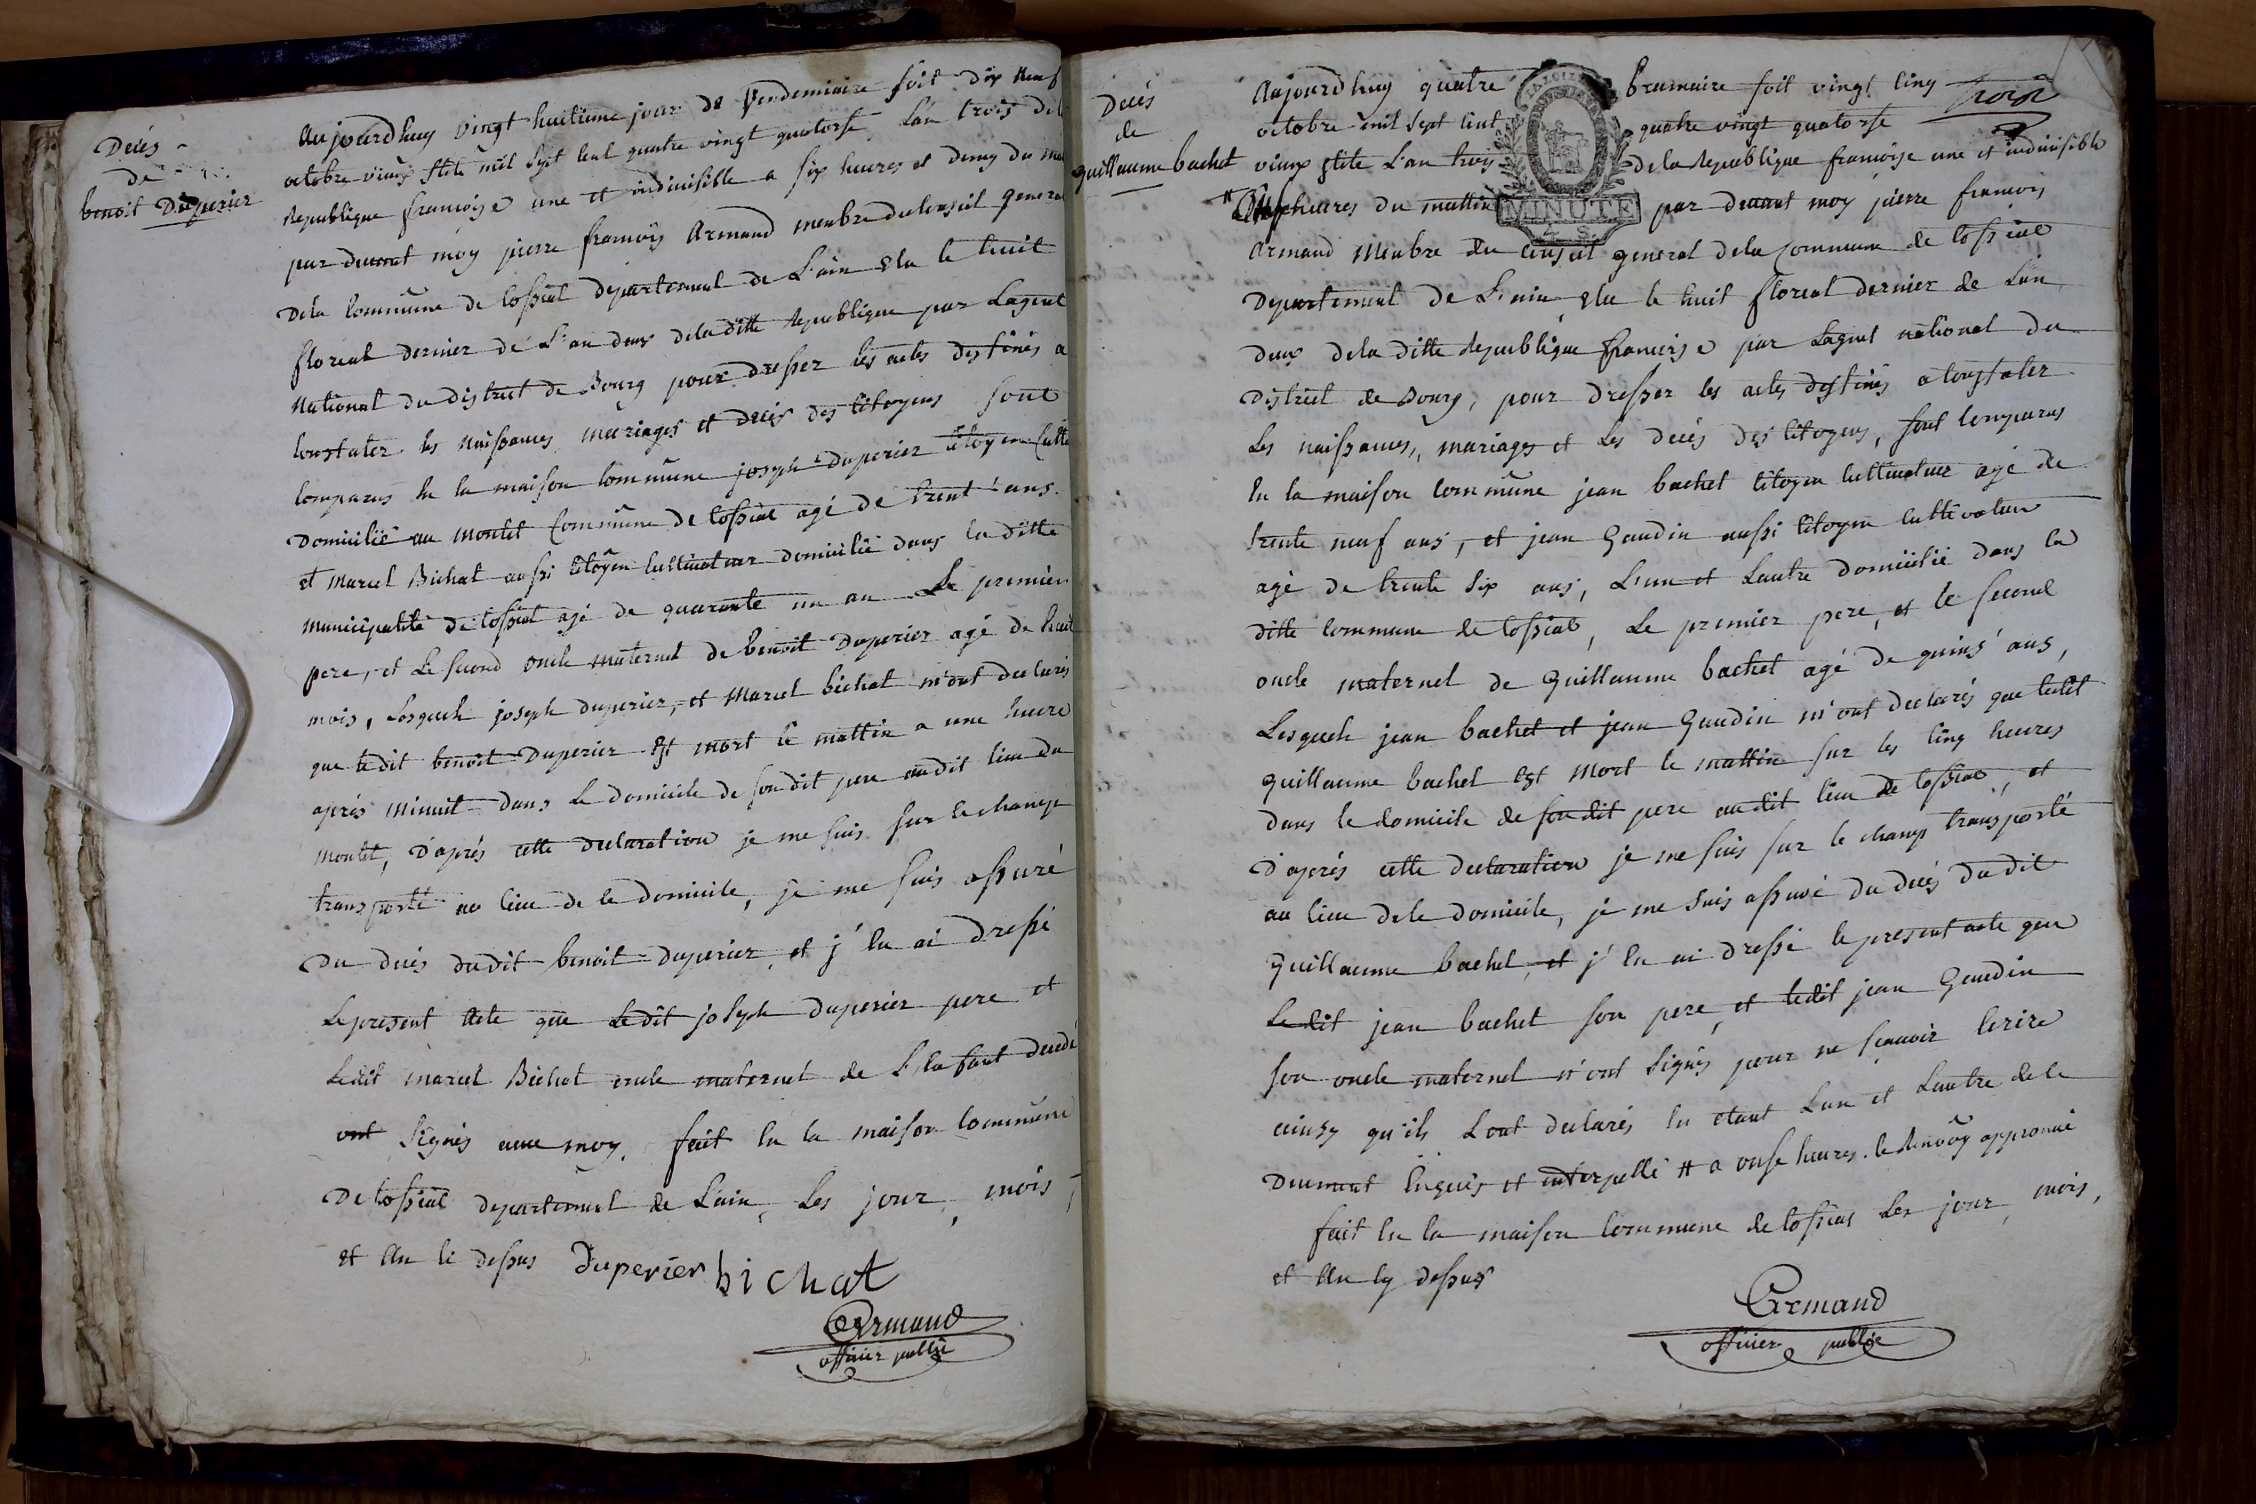 Decés
de
benoit Duperier
Aujourdhuy vingt huitieme jour de Vendemiaire soit dix neuf
octobre vieux stile mil sept cent quatre vingt quatorse L'an trois de la
Republique françoise une et indivisible a six heures et demy du
par devant moy pierre françois Armand menbre du conseil general
de la Commune de Cossiat departement de L'ain elu le huit
floreal dernier de L'an deux de la ditte Republique par L'agent
National du district de Bourg pour dresser les actes destinés a
constater les Naissances mariages et decés des citoyens sont
comparus en la maison commune joseph Duperier citoyen
domicilié au montet commune de Cossiat agé de trent'ans
et Marcel Bichat aussi citoyen cultivateur domicilié dans la ditte
municipalité de Cossiat agé de quarante un an Le premier
pere, et Le second oncle maternel de benoit Duperier agé de huit
mois, Lesquels joseph duperier, et Marcel bichat m'ont declarés
que ledit benoit Duperier est mort le mattin a une heure
aprés minuit dans Le domicile de son dit pere audit lieu du
montet, D'aprés cette declaration je me suis sur le champ
transporté au lieu de le domicile, je me suis assuré
du decés dudit benoit duperier, et j'en ai dressé
Le present Acte que Ledit joseph duperier pere et
Ledit marcel Bichat oncle maternel de L'enfant decedé
ont signés avec moy. fait en la maison commune
de Cossiat departement de L'ain, Les jour, mois,
et An ci dessus Duperier bichat
Armand
officier public
Decés
de
Guillaume bachet
trois
Aujourdhuy quatre Brumaire soit vingt cinq
octobre mil sept cent quatre vingt quatorse
vieux stile L'an trois de la Republique françoise une et indivisible
heures du mattin par devant moy pierre françois
MINUTE
Armand Menbre du conseil general de la Commune de Cossiat
Departement de L'ain elu le huit floreal dernier de L'an
deux de la ditte Republique françoise par L'agent national du
District de Bourg, pour dresser les actes destinés a constater
Les naissances, mariages et Les decés des citoyens, sont comparus
en la maison commune jean bachet citoyen cultivateur agé de
trente neuf ans, et jean Gaudin aussi citoyen cultivateur
agé de trente six ans, L'un et L'autre domicilié dans la
ditte commune de Cossiat, Le premier pere, et le second
oncle maternel de Guillaume bachet agé de quins'ans,
Lesquels jean bachet et jean Gaudin m'ont declarés que ledit
Guillaume bachet est mort le mattin sur les cinq heures
dans le domicile de son dit pere audit lieu de Cossiat, et
D'aprés cette declaration je me suis sur le champ transporté
au lieu de le domicile, je me suis assuré du decés dudit
Guillaume bachet, et j'en ai dressé le present acte que
Le dit jean bachet son pere, et ledit jean Gaudin
son oncle maternel n'ont signés pour ne sçavoir ecrire
ainsy qu'ils L'ont declarés en etant L'un et L'autre de le
Dument enquis et interpellé # a onse heures. le Renvoy approuvé
fait en la maison commune de Cossiat Les jour, mois,
et An cy dessus
Armand
officier public